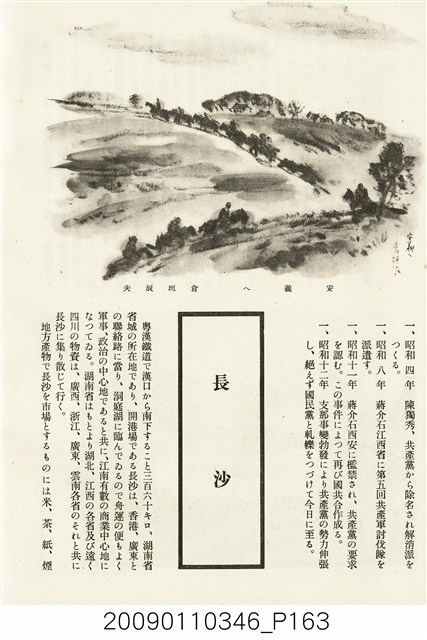 安義へ　倉垣辰夫
一、昭和四年　陳獨秀、共產黨から除名され解消派を
つくる。
一、昭和八年　蔣介石江西省に第五回共產軍討伐隊を
派遣す。
一、昭和十一年　蔣介石西安に檻禁され、共產黨の要求
を認む。この事件によつて再び國共合作成る。
一、昭和十二年　支那事變勃發により共產黨の勢力伸張
し、絕えず國民黨と軋轢をつづけて今日に至る。
長沙
粵漢鐵道で漢口から南下すること三百六十キロ、湖南省
省城の所在地であり、開港場である長沙は、香港、廣東と
の聯絡路に當り、洞庭湖に臨んでゐるので舟運の便もよく
軍事、政治の中心地であると共に、江南有數の商業中心地に
なつてゐる。湖南省はもとより湖北、江西の各省及び遠く
四川の物資は、廣西、浙江、廣東、雲南各省のそれと共に
長沙に集り散じて行く。
地方產物で長沙を市場とするものには米、茶、紙、煙
20090110346_P163